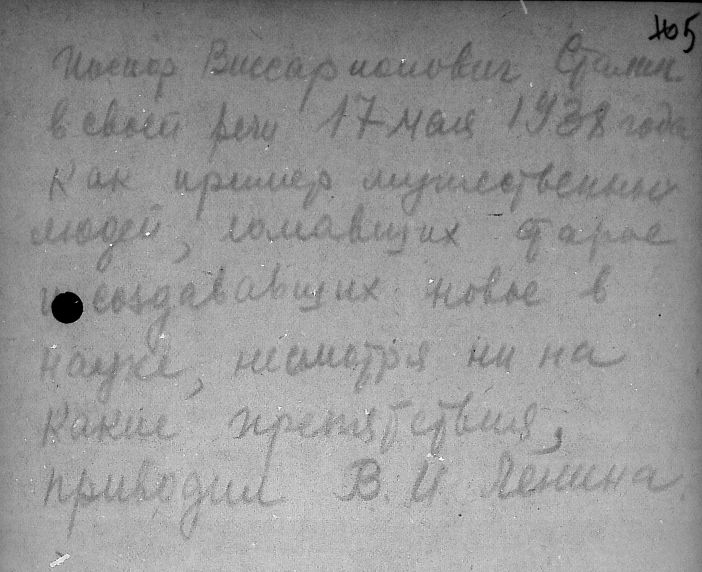 105
Иосиф Виссарионович Сталин
в своей речи 17 мая 1938 года
как пример мужественных
людей, ломавших старое
и создававших новое в
науке, несмотря ни на
какие препятствия,
приводил В. И. Ленина.